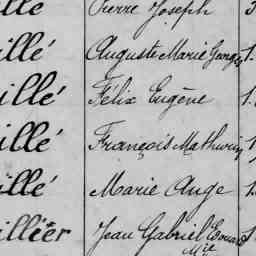 illé Pierre Joseph
illé Auguste Marie Georges
illé Félix Eugène
illé François Mathurin
illé Marie Ange
illier Jean Gabriel Edouard
Mie